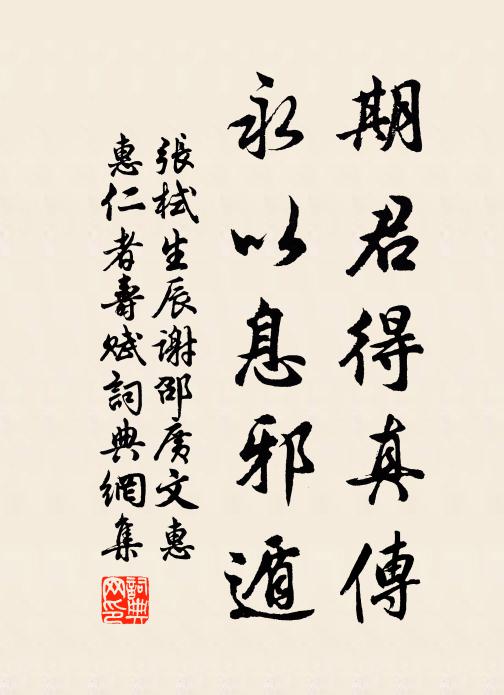 期君得真傳
永以息邪遁
張栻生辰謝邵廣文惠
惠仁者壽賦詞典網集
詞典網印